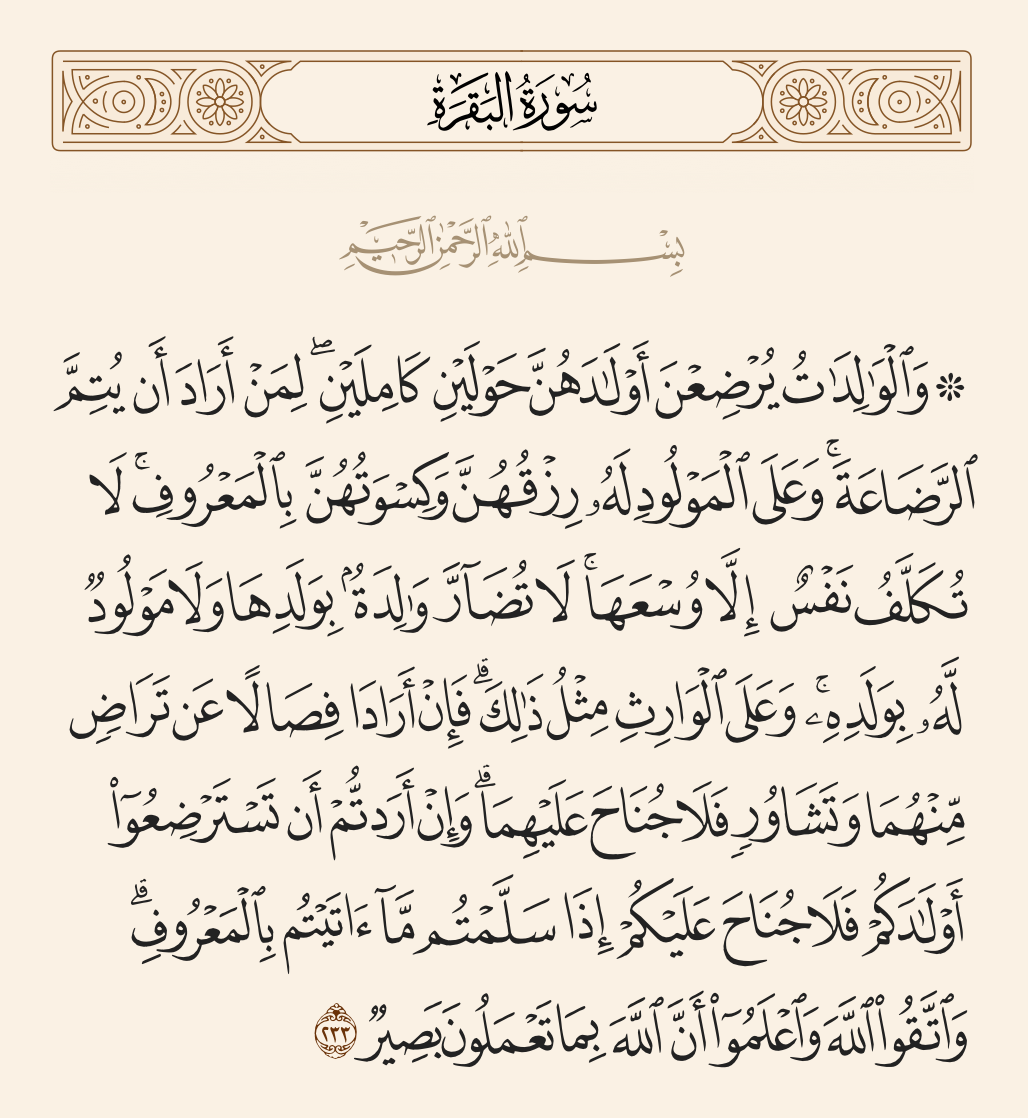 سُورَةُ البَقَرَةِ
بِسْمِ ٱللَّهِ ٱلرَّحْمَٰنِ ٱلرَّحِيمِ
۞ وَٱلْوَٰلِدَٰتُ يُرْضِعْنَ أَوْلَٰدَهُنَّ حَوْلَيْنِ كَامِلَيْنِ ۖ لِمَنْ أَرَادَ أَن يُتِمَّ
ٱلرَّضَاعَةَ ۚ وَعَلَى ٱلْمَوْلُودِ لَهُۥ رِزْقُهُنَّ وَكِسْوَتُهُنَّ بِٱلْمَعْرُوفِ ۚ لَا
تُكَلَّفُ نَفْسٌ إِلَّا وُسْعَهَا ۚ لَا تُضَآرَّ وَٰلِدَةٌۢ بِوَلَدِهَا وَلَا مَوْلُودٌ
لَّهُۥ بِوَلَدِهِۦ ۚ وَعَلَى ٱلْوَارِثِ مِثْلُ ذَٰلِكَ ۗ فَإِنْ أَرَادَا فِصَالًا عَن تَرَاضٍ
مِّنْهُمَا وَتَشَاوُرٍ فَلَا جُنَاحَ عَلَيْهِمَا ۗ وَإِنْ أَرَدتُّمْ أَن تَسْتَرْضِعُوٓا۟
أَوْلَٰدَكُمْ فَلَا جُنَاحَ عَلَيْكُمْ إِذَا سَلَّمْتُم مَّآ ءَاتَيْتُم بِٱلْمَعْرُوفِ ۗ
وَٱتَّقُوا۟ ٱللَّهَ وَٱعْلَمُوٓا۟ أَنَّ ٱللَّهَ بِمَا تَعْمَلُونَ بَصِيرٌ ٢٣٣